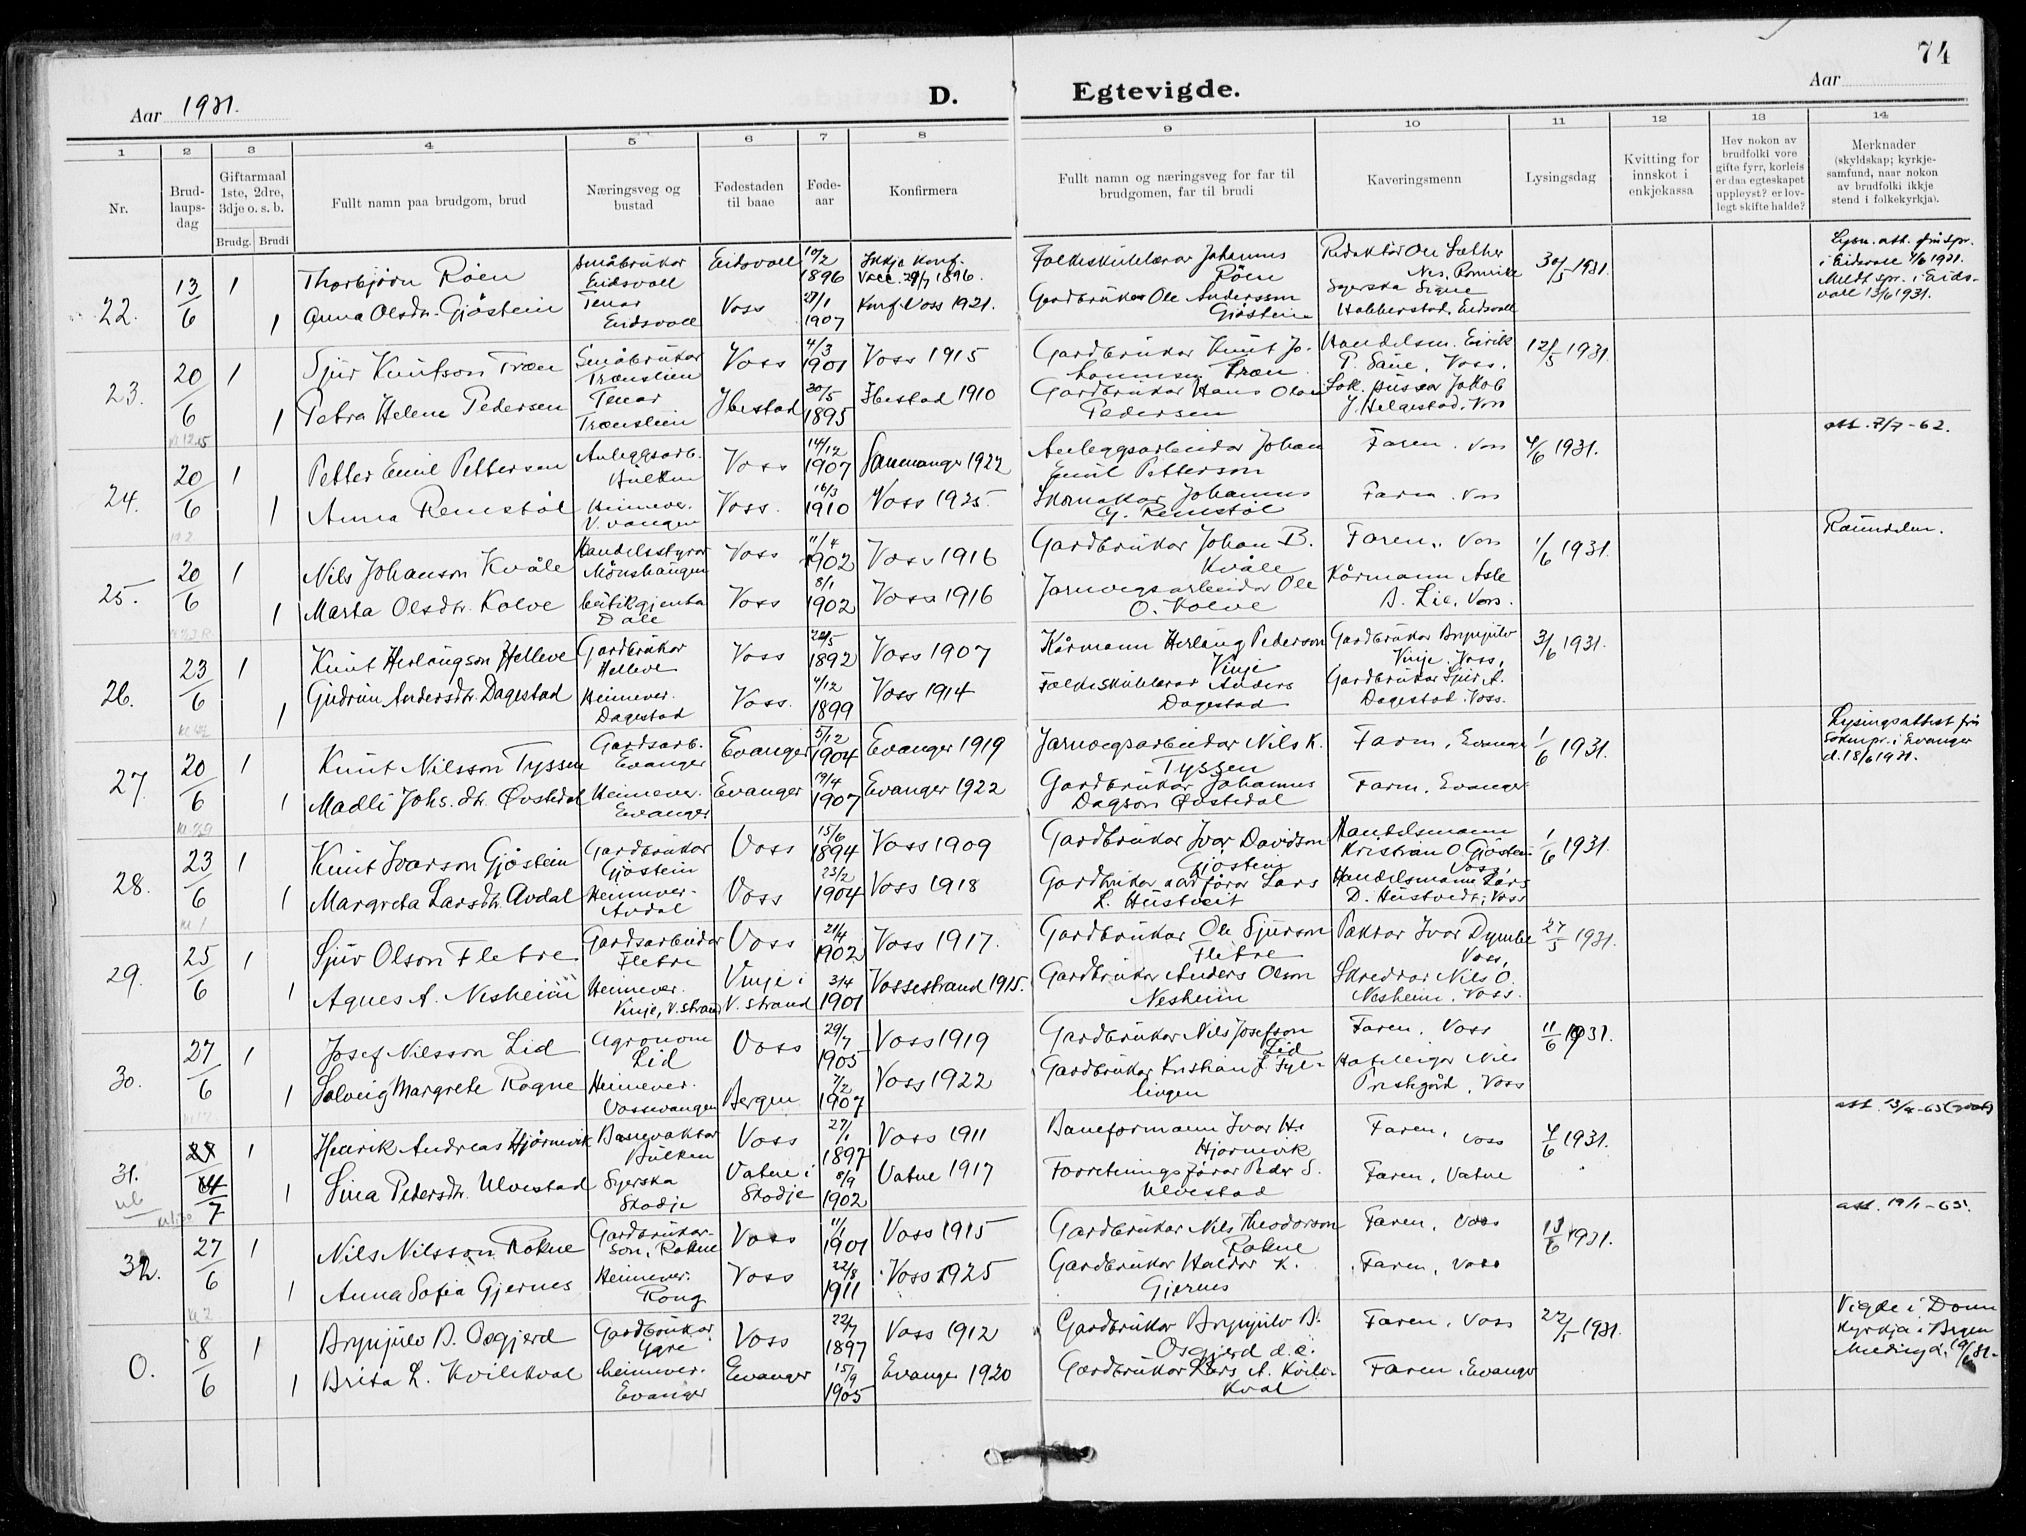 74
Aar 1931.
D. Egtevigde.
Aar
1 2 3 4 5 6 7 8 9 10 11 12 13 14
Nr.
Brud-
laups-
dag
Giftarmaal
1ste, 2dre,
3dje o. s. b.
Brudg. Brudi
Fullt namn paa brudgom, brud
Næringsveg og
bustad
Fødestaden
til baae
Føde-
aar
Konfirmera
Fullt namn og næringsveg for far til
brudgomen, far til brudi
Kaveringsmenn
Lysingsdag
Kvitting for
innskot i
enkjekassa
Hev nokon av
brudfolki vore
gifte fyrr, korleis
er daa egteskapet
uppløyst? er lov-
legt skifte halde?
Merknader
(skyldskap; kyrkje-
samfund, naar nokon
av brudfolki ikkje
stend i folkekyrkja).
22. 13/6 1 Thorbjørn Röen Småbrukar Eidsvoll Eidsvoll 10/2 1896 Ikkje konf. Vacc. 29/7 1896. Folkeskulelærar Johannes Röen Redaktør Ole Sæther Nes, Romerike 30/5 1931.
1 Anna Olsdtr. Gjöstein Tenar Eidsvoll Voss 27/1 1907 Konf. Voss 1921. Gardbrukar Ole Andersson Gjöstein Syerska Signe Habberstad, Eidsvoll
Lysn. att. frå spr.
i Eidsvoll 1/6 1931.
Meldt spr. i Eids-
voll 13/6 1931.
23. 20/6 1 Sjur Knutson Træn Småbrukar Trænslien Voss 4/3 1901 Voss 1915 Gardbrukar Knut Jo-
hannesen Træn Handelsm. Eirik P. Saue, Voss. 12/5 1931.
1 Petra Helene Pedersen Tenar Trænslien Ibestad 30/5 1895 Ibestad 1910 Gardbrukar Hans Olai Pedersen J. Helgestad, Voss
att. 7/7-62.
24. 20/6 1 Petter Emil Pettersen Anleggsarb. Bulken Voss 14/12 1907 Samnanger 1922 Anleggsarbeidar Johan Emil Petterson Faren. Voss 4/6 1931.
1 Anna Remstøl Heimever. V. vangen Voss. 16/3 1910 Voss 1925. Skomakar Johannes G. Remstøl Faren. Voss
Raundalen.
25. 20/6 1 Nils Johanson Kvåle Handelsstyrar Mönshaugen Voss 11/4 1902 Voss 1916 Gardbrukar Johan B. Kvåle Faren, Voss 1/6 1931.
1 Marta Olsdtr. Kolve butikgjenta Dale Voss 8/1 1902 Voss 1916 Jarnvegsarbeidar Ole O. Kolve Kårmann Asle B. Lie, Voss.
26. 23/6 1 Knut Herlaugson Helleve Gardbrukar Helleve Voss 22/5 1892 Voss 1907 Kårmann Herlaug Pederson Vinje Gardbrukar Brynjulv Vinje, Voss, 3/6 1931.
1 Gudrun Andersdtr. Dagestad Heimever. Dagestad Voss. 4/12 1899 Voss 1914 Folkeskulelærar Anders Dagestad Gardbrukar Sjur A. Dagestad. Voss.
27. 20/6 1 Knut Nilsson Tyssen Gardsarb. Evanger Evanger 5/12 1904 Evanger 1919 Jarnvegsarbeidar Nils K. Tyssen Faren, Evanger 1/6 1931.
1 Madli Johs. dtr. Øvstedal Heimever. Evanger Evanger 19/4 1907 Evanger 1922 Gardbrukar Johannes Dagson Øvstedal Faren. Evanger
Lysingsattest frå
Soknpr. i Evanger
d. 18/6 1931.
28. 23/6 1 Knut Ivarson Gjöstein Gardbrukar Gjöstein Voss 15/6 1894 Voss 1909 Gardbrukar Ivar Davidson Gjöstein Handelsmann Kristian O. Gjöstein Voss, 1/6 1931.
1 Margreta Larsdtr. Avdal Heimever. Avdal Voss 23/2 1904 Voss 1918 Gardbrukar, ordförar Lars L. Hustveit Handelsmann Lars D. Hustvedt, Voss
29. 25/6 1 Sjur Olson Fletre Gardsarbeidar Fletre Voss 21/4 1902 Voss 1917. Gardbrukar Ole Sjurson Fletre Paktar Ivar Dymbe Voss, 27/5 1931.
1 Agnes A. Nesheim Heimever. Vinje, V. strand Vinje i V. strand 3/4 1901 Vossestrand 1915. Gardbrukar Anders Olson Nesheim Skreddar Nils O. Nesheim, Voss.
30. 27/6 1 Josef Nilsson Lid Agronom Lid Voss 29/7 1905 Voss 1919 Gardbrukar Nils Josefson Lid Faren, Voss 11/6 1931.
1 Solveig Margrete Rogne Heimever. Vossevangen Bergen 7/2 1907 Voss 1922 Gardbrukar Kristian J. Fyl-
lingen Hotelleigar Nils Prestegård, Voss
att. 13/4-63
31. 27 14/7 1 Henrik Andreas Hjörnevik Banevaktar Bulken Voss 27/1 1897 Voss 1911 Baneformann Ivar H. Hjørnevik Faren, Voss 4/6 1931.
1 Sina Pedersdtr. Ulvestad Syerska Skodje Vatne i Skodje 8/9 1902 Vatne 1917 Forretningsførar Peder S. Ulvestad Faren, Vatne
att. 19/1-65.
32. 27/6 1 Nils Nilsson Rokne Gardbrukar-
son, Rokne Voss 11/1 1901 Voss 1915 Gardbrukar Nils Theodorson Rokne Faren, Voss 13/6 1931.
1 Anna Sofia Gjernes Heimever. Rong Voss 22/8 1911 Voss 1925 Gardbrukar Haldor K. Gjernes Faren, Voss
O. 8/6 1 Brynjulv B. Osgjerd Gardbrukar Gjære Voss 22/7 1897 Voss 1912 Gardbrukar Brynjulv B. Osgjerd d.e. Faren, Voss 22/5 1931.
1 Brita L. Kvilekval heimever. Evanger Evanger 15/9 1905 Evanger 1920 Gardbrukar Lars A. Kvile-
kval Faren, Evanger
Vigde i Dom-
kyrkja i Bergen